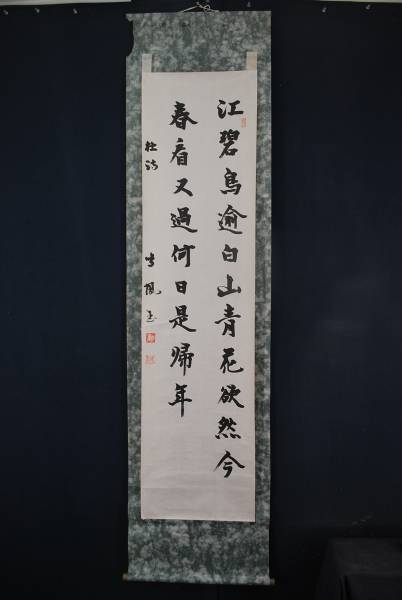 江碧鳥逾白山青花欲然今
春看又過何日是歸年
杜詩